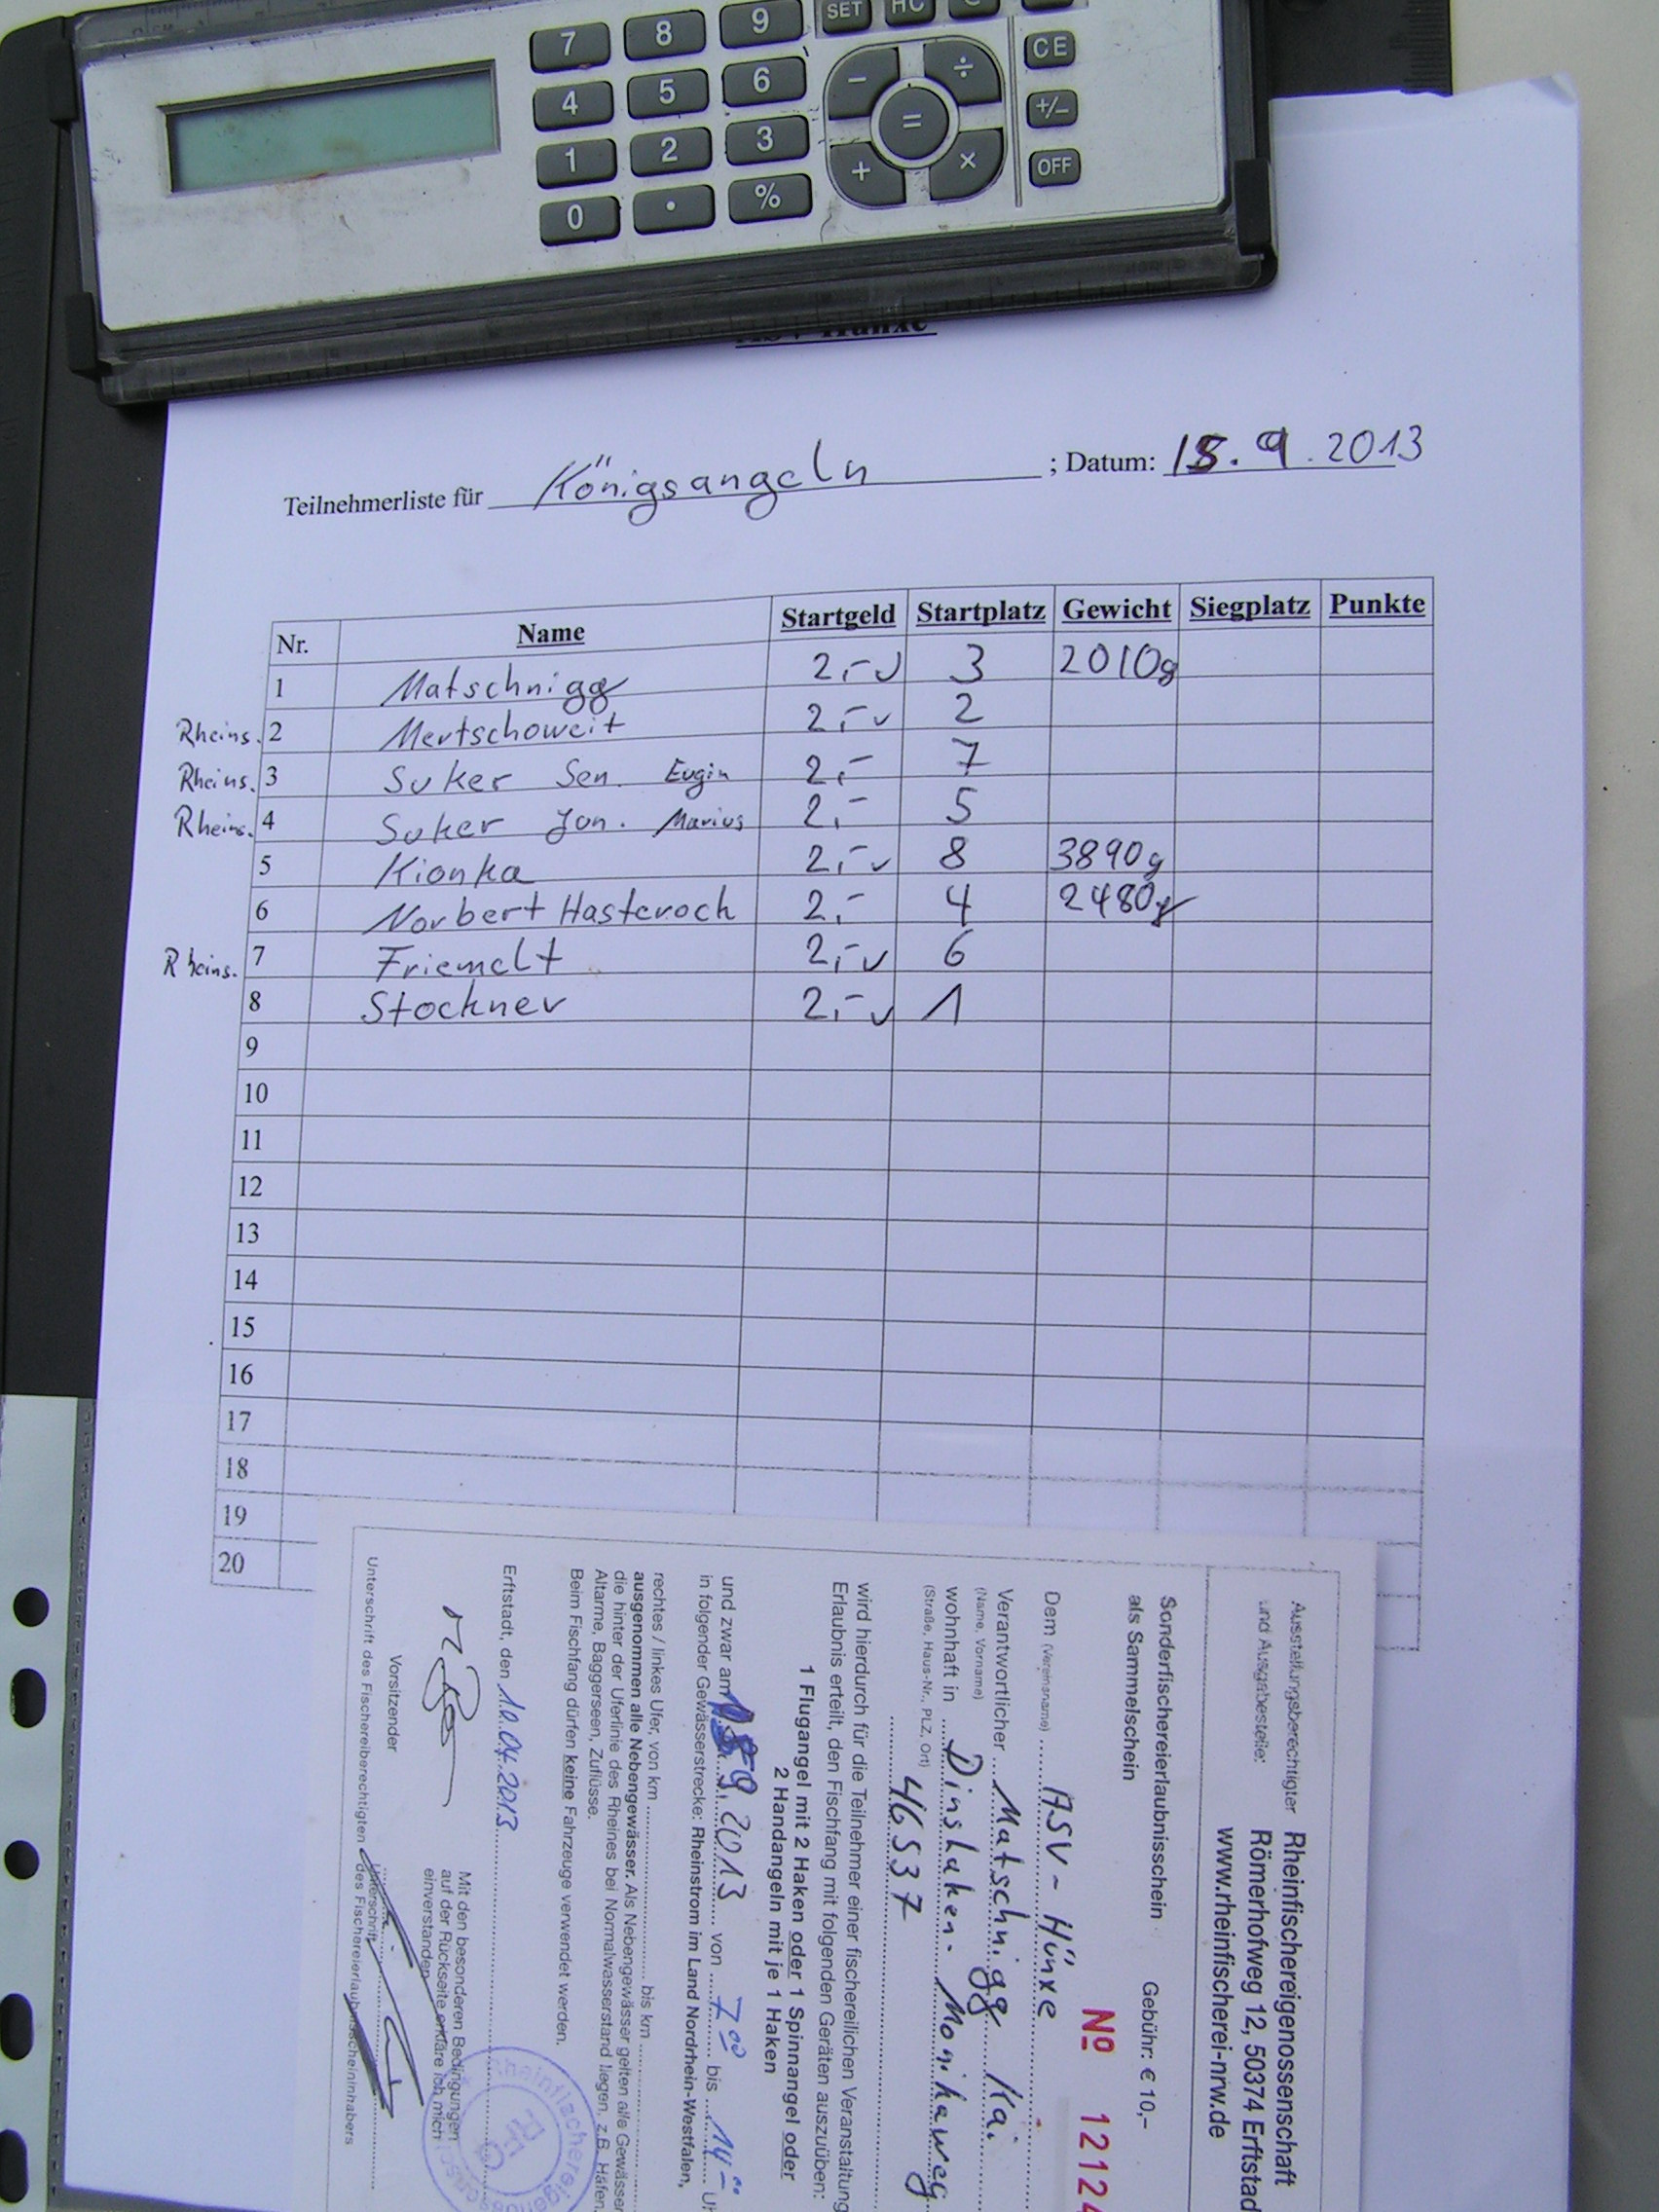 7 8 9 SET
4 5 6 − ÷ CE
1 2 3 = +/−
0 . % + × OFF
Teilnehmerliste für Königsangeln ; Datum: 15.9.2013
Nr. Name Startgeld Startplatz Gewicht Siegplatz Punkte
1 Matschnigg 2,- 3 2010g
Rheins. 2 Mertschoweit 2,- 2
Rheins. 3 Suker Sen. Eugin 2,- 7
Rheins. 4 Suker Jun. Marius 2,- 5
5 Kionka 2,- 8 3890g
6 Norbert Hasteroch 2,- 4 2480g
Rheins. 7 Friemelt 2,- 6
8 Stockner 2,- 1
9
10
11
12
13
14
15
16
17
18
19
20
Ausstellungsberechtigter Rheinfischereigenossenschaft
und Ausgabestelle: Römerhofweg 12, 50374 Erftstad
www.rheinfischerei-nrw.de
Sonderfischereierlaubnisschein Gebühr: € 10,–
als Sammelschein
No 1212
Dem (Vereinsname) ASV - Hünxe
Verantwortlicher Matschnigg Kai
(Name, Vorname)
wohnhaft in Dinslaken - Monikaweg
(Straße, Haus-Nr., PLZ, Ort)
46537
wird hierdurch für die Teilnehmer einer fischereilichen Veranstaltung
Erlaubnis erteilt, den Fischfang mit folgenden Geräten auszuüben:
1 Flugangel mit 2 Haken oder 1 Spinnangel oder
2 Handangeln mit je 1 Haken
und zwar am 9. 2013 von 7 00 bis 14
in folgender Gewässerstrecke: Rheinstrom im Land Nordrhein-Westfalen,
rechtes / linkes Ufer, von km bis km
ausgenommen alle Nebengewässer. Als Nebengewässer gelten alle Gewässer
die hinter der Uferlinie des Rheines bei Normalwasserstand liegen, z.B. Häfen,
Altarme, Baggerseen, Zuflüsse.
Beim Fischfang dürfen keine Fahrzeuge verwendet werden.
Erftstadt, den 10.04.2013
Mit den besonderen Bedingungen
auf der Rückseite erkläre ich mich
einverstanden
Vorsitzender
Unterschrift
Unterschrift des Fischereiberechtigten
des Fischereierlaubnisscheininhabers
RFG